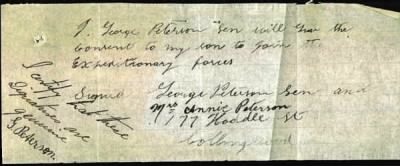 I, George Peterson Sen will give the
Consent to my son to Join the
Expeditionary forces
Signed George Peterson Sen and
Mrs Annie Peterson
177 Hoddle St
Collingwood
I certify that these
signatures are
genuine
G Peterson.